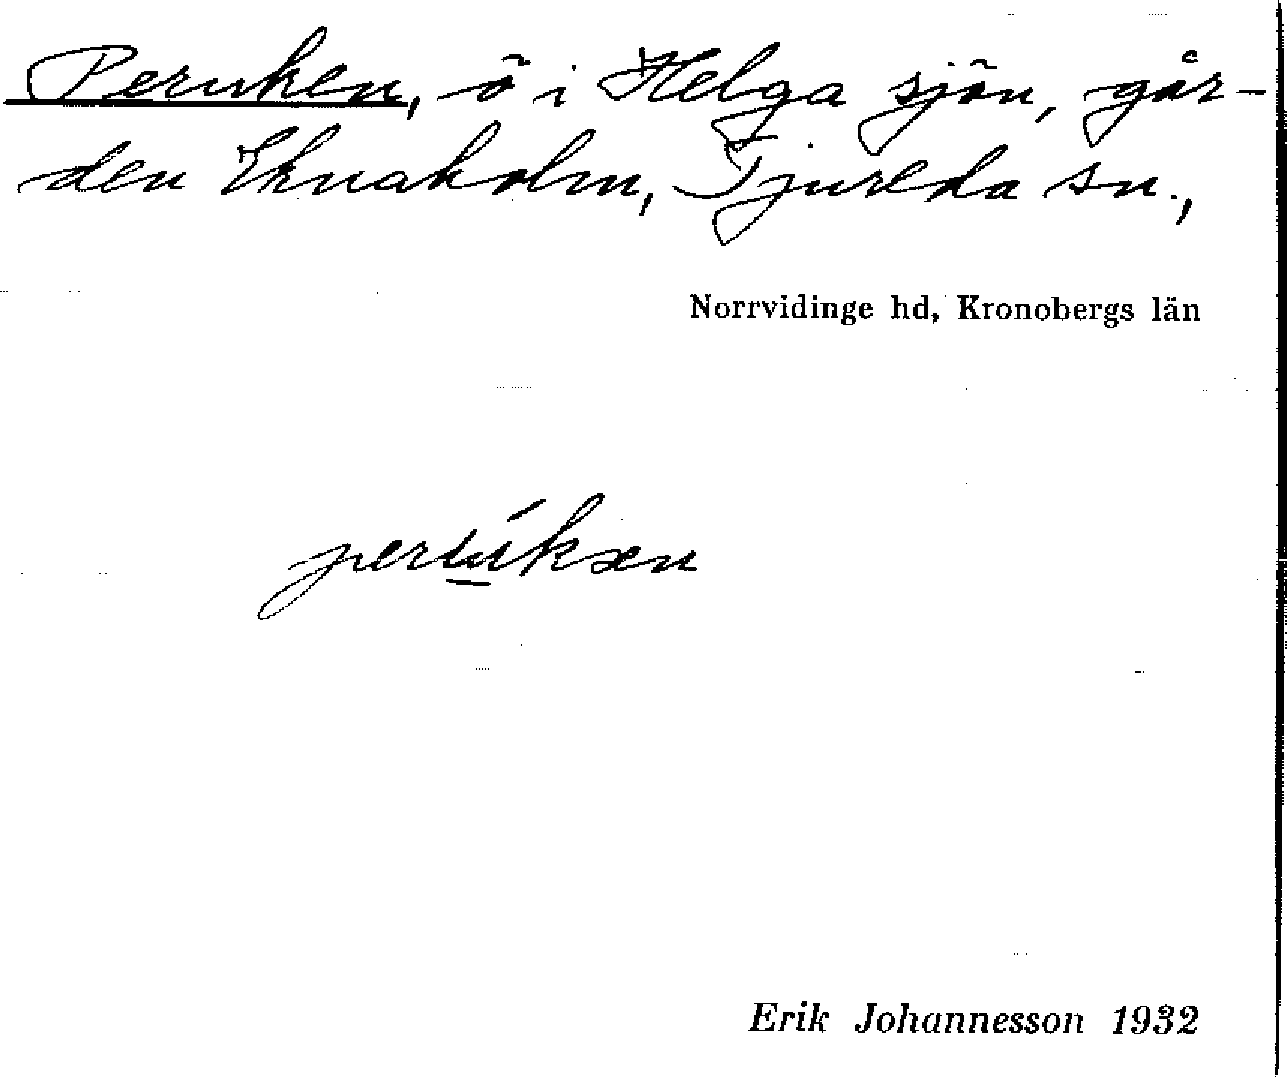 Peruken, ö i Helga sjön, går-
den Eknaholm, Tjureda sn.,
Norrvidinge hd, Kronobergs län
perúkxn
Erik Johannesson 1932